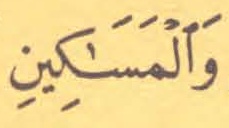 وَٱلْمَسَـٰكِينِ